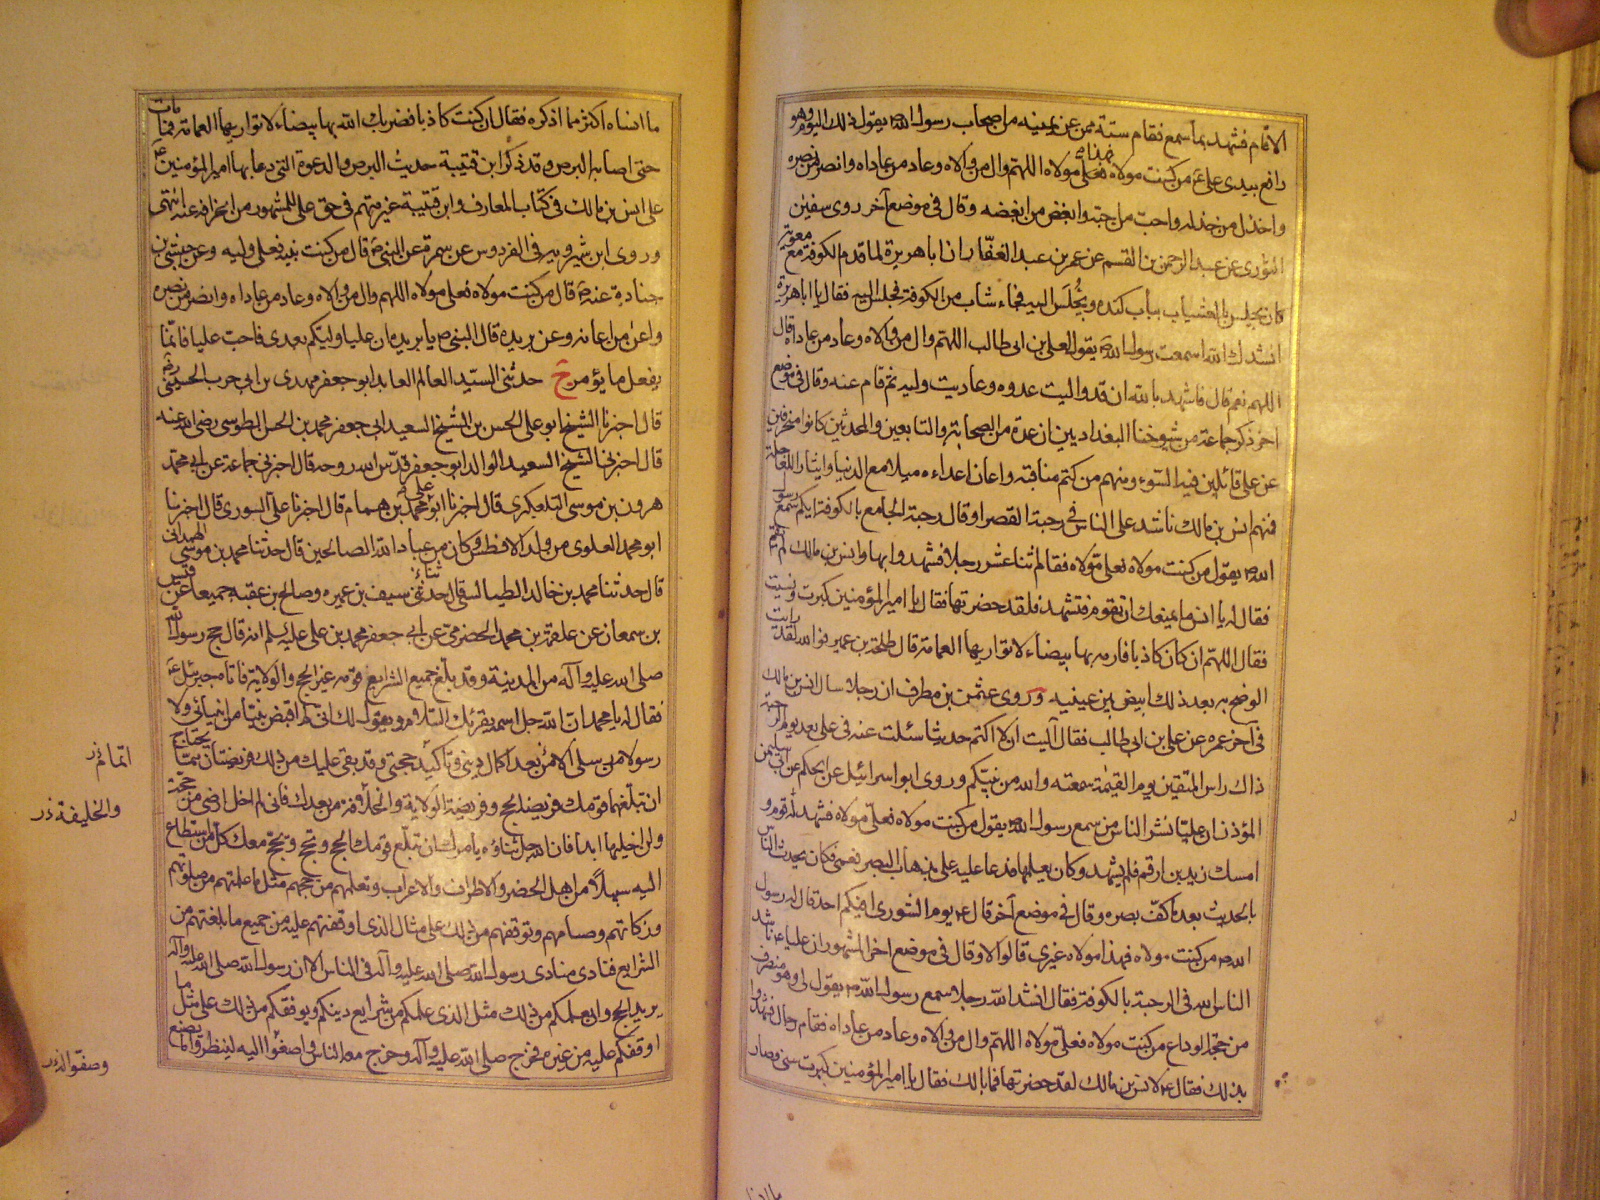 الا قام فشهد بما سمع فقام ستة ممن عن يمينه من اصحاب رسول الله ص يقول ذلك اليوم وهو
رافع بيدى على ع من كنت مولاه فهذا على مولاه اللهم وال من والاه وعاد من عاداه وانصر من نصره
واخذل من خذله واحب من احبه وابغض من ابغضه وقال فى موضع آخر روى سفين
الثورى عن عبد الرحمن بن القسم عن عمر بن عبد الغفار ان ابا هريرة لما قدم الكوفة مع معوية
كان يجلس بالعشيات بباب كنده ويجلس اليه فجاء شاب من الكوفة فجلس اليه فقال يا ابا هريرة
انشدك الله اسمعت رسول الله ص يقول لعلى بن ابى طالب اللهم وال من والاه وعاد من عاداه قال
اللهم نعم قال فاشهد بالله ان قد واليت عدوه وعاديت وليه ثم قام عنه وقال فى موضع
آخر ذكر جماعة من شيوخنا البغداديين ان عدة من الصحابة والتابعين والمحدثين كانوا منحرفين
عن على قائلين فيه السوء ومنهم من كتم مناقبه واعان اعداءه ميلا مع الدنيا وايثارا للعاجلة
فمنهم انس بن مالك ناشد على الناس فى رحبة القصر او قال رحبة الجامع بالكوفة ايكم سمع رسول
الله ص يقول من كنت مولاه فعلى مولاه فقام اثنا عشر رجلا فشهدوا بها وانس بن مالك لم يقم
فقال له يا انس ما يمنعك ان تقوم فتشهد فلقد حضرتها فقال يا امير المؤمنين كبرت ونسيت
فقال اللهم ان كان كاذبا فارمه بها بيضاء لا تواريها العمامة قال طلحة بن عمير فوالله لقد رايت
الوضح به بعد ذلك ابيض بين عينيه وروى عثمن بن مطرف ان رجلا سال انس بن مالك
فى آخر عمره عن على بن ابى طالب فقال آليت ان لا اكتم حديثا سئلت عنه فى على بعد يوم الرحبة
ذاك راس المتقين يوم القيمة سمعته والله من نبيكم وروى ابو اسرائيل عن الحكم عن ابى سليمن
المؤذن ان عليا نشد الناس من سمع رسول الله ص يقول من كنت مولاه فعلى مولاه فشهد له قوم و
امسك زيد بن ارقم فلم يشهد وكان يعلمها فدعا عليه على بذهاب البصر فعمى فكان يحدث الناس
بالحديث بعد ما كف بصره وقال فى موضع آخر قال ع يوم الشورى افيكم احد قال له رسول
الله ص من كنت مولاه فهذا مولاه غيرى قالوا لا وقال فى موضع آخر المشهور ان عليا ع ناشد
الناس الله فى الرحبة بالكوفة فقال انشد الله رجلا سمع رسول الله ص يقول لى وهو منصرف
من حجة الوداع من كنت مولاه فعلى مولاه اللهم وال من والاه وعاد من عاداه فقام رجال فشهدوا
بذلك فقال ع لانس بن مالك لقد حضرتها فما بالك فقال يا امير المؤمنين كبرت سنى وصار
ما انساه اكثر مما اذكره فقال ان كنت كاذبا فضربك الله بها بيضاء لا تواريها العمامة فما مات
حتى اصابه البرص وقد ذكر ابن قتيبة حديث البرص والدعوة التى دعا بها امير المؤمنين ع
على انس بن مالك فى كتاب المعارف وابن قتيبة غير متهم فى حق على للمشهور من انحرافه عنه انتهى
وروى ابن شيرويه فى الفردوس عن سمرة عن النبى ص قال من كنت نبيه فعلى وليه وعن حبشى بن
جنادة عنه ص قال من كنت مولاه فعلى مولاه اللهم وال من والاه وعاد من عاداه وانصر من نصره
واعن من اعانه وعن بريده قال النبى ص يا بريده ان عليا وليكم بعدى فاحب عليا فانما
يفعل ما يؤمر ح حدثنى السيد العالم العابد ابو جعفر مهدى بن ابى حرب الحسينى رض
قال اخبرنا الشيخ ابو على الحسن بن الشيخ السعيد ابى جعفر محمد بن الحسن الطوسى رضى الله عنه
قال اخبرنى الشيخ السعيد الوالد ابو جعفر قدس الله روحه قال اخبرنى جماعة عن ابى محمد
هرون بن موسى التلعكبرى قال اخبرنا ابو على محمد بن همام قال اخبرنا على السورى قال اخبرنا
ابو محمد العلوى من ولد الافطس وكان من عباد الله الصالحين قال حدثنا محمد بن موسى الهمدانى
قال حدثنا محمد بن خالد الطيالسى قال حدثنى سيف بن عميره وصالح بن عقبه جميعا عن قيس
بن سمعان عن علقمة بن محمد الحضرمى عن ابى جعفر محمد بن على عليه السلم انه قال حج رسول الله
صلى الله عليه وآله من المدينة وقد بلغ جميع الشرايع قومه غير الحج والولاية فاتاه جبرئيل ع
فقال له يا محمد ان الله جل اسمه يقرئك السلام ويقول لك انى لم اقبض نبيا من انبيائى ولا
رسولا من رسلى الا من بعد اكمال دينى وتاكيد حجتى وقد بقى عليك من ذلك فريضتان مما يحتاج
ان تبلغهما قومك فريضة الحج وفريضة الولاية والخلافة من بعدك فانى لم اخل ارضى من حجة
ولن اخليها ابدا فان الله جل ثناؤه يامرك ان تبلغ قومك الحج وتحج وتحج معك كل من استطاع
اليه سبيلا من اهل الحضر والاطراف والاعراب وتعلمهم من حجهم مثل ما علمتهم من صلوتهم
وزكاتهم وصيامهم وتوقفهم من ذلك على مثال الذى اوقفتهم عليه من جميع ما بلغتهم من
الشرايع فنادى منادى رسول الله صلى الله عليه وآله فى الناس الا ان رسول الله صلى الله عليه وآله
يريد الحج وان يعلمكم من ذلك مثل الذى علمكم من شرايع دينكم ويوقفكم من ذلك على مثل ما
اوقفكم عليه من غيره فخرج صلى الله عليه وآله وخرج معه الناس واصغوا اليه لينظروا ما يصنع
والخليفة ذر